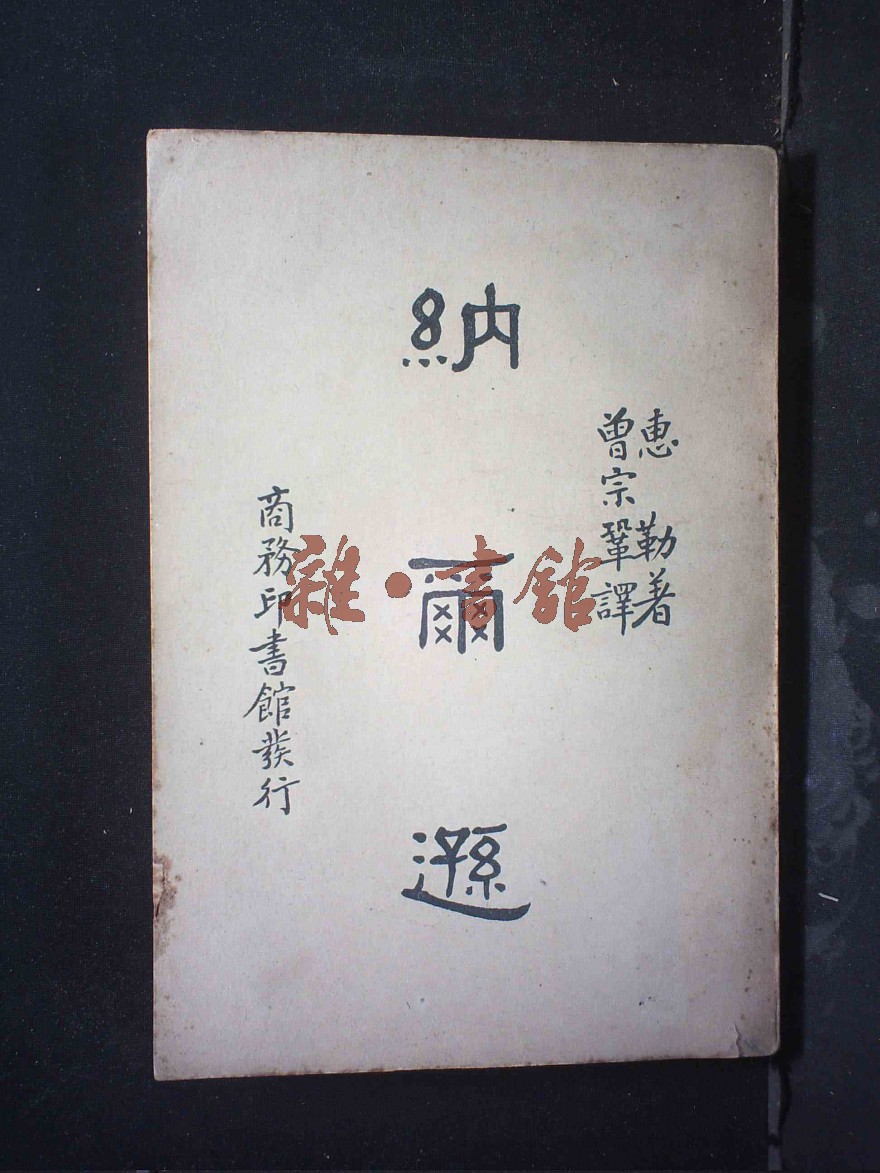 惠勒著
曾宗鞏譯
納爾遜
商務印書館發行
雜·書館